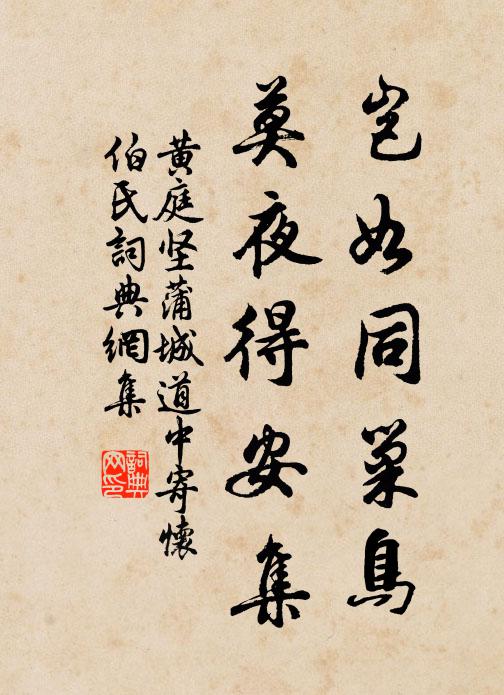 豈如同巢鳥
莫夜得安集
黄庭坚蒲城道中寄懷
伯氏詞典網集
詞典網印